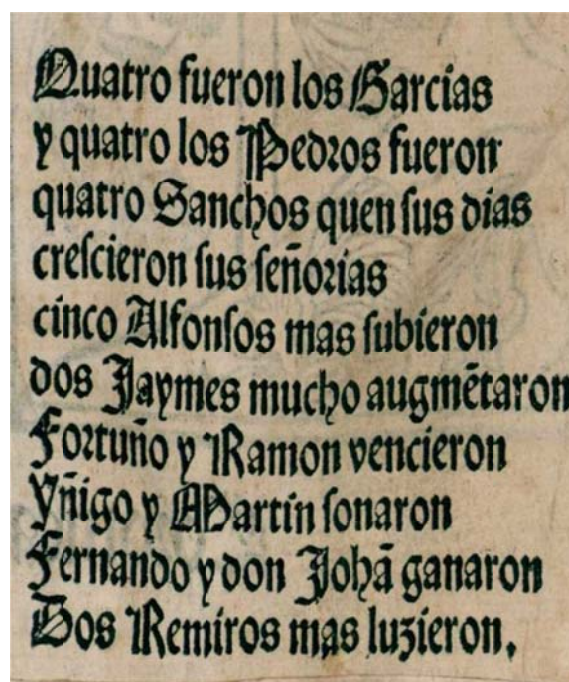 Quatro fueron los Garcias
y quatro los Pedros fueron
quatro Sanchos quen ſus dias
creſcieron ſus ſeñorias
cinco Alfonſos mas ſubieron
dos Jaymes mucho augmẽtaron
Fortuño y Ramon vencieron
Yñigo y Martin ſonaron
Fernando y don Johã ganaron
Dos Remiros mas luzieron.